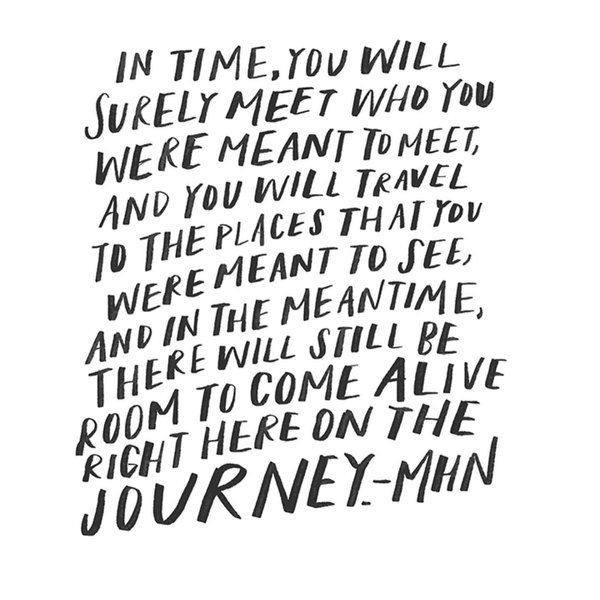 IN TIME, YOU WILL
SURELY MEET WHO YOU
WERE MEANT TO MEET,
AND YOU WILL TRAVEL
TO THE PLACES THAT YOU
WERE MEANT TO SEE,
AND IN THE MEANTIME,
THERE WILL STILL BE
ROOM TO COME ALIVE
RIGHT HERE ON THE
JOURNEY.-MHN